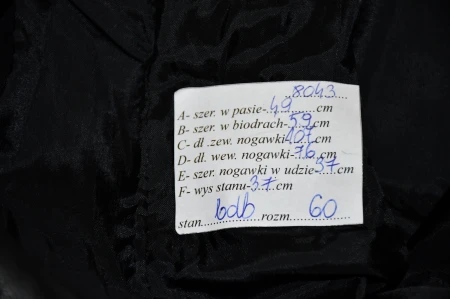 8043
A- szer. w pasie-49cm
B- szer. w biodrach-59cm
C- dł .zew. nogawki-107cm
D- dł. wew. nogawki-76cm
E- szer. nogawki w udzie-37cm
F- wys stanu-37cm
stan bdb rozm. 60